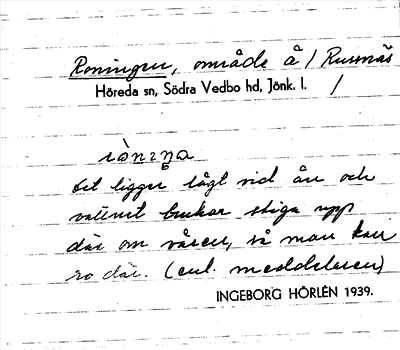 Roningen, område å / Rusnäs
Höreda sn, Södra Vedbo hd, Jönk. l. /
det ligger lågt vid ån och
vattnet brukar stiga upp
där om våren, så man kan
ro där. (enl. meddelaren)
INGEBORG HÖRLÉN 1939.